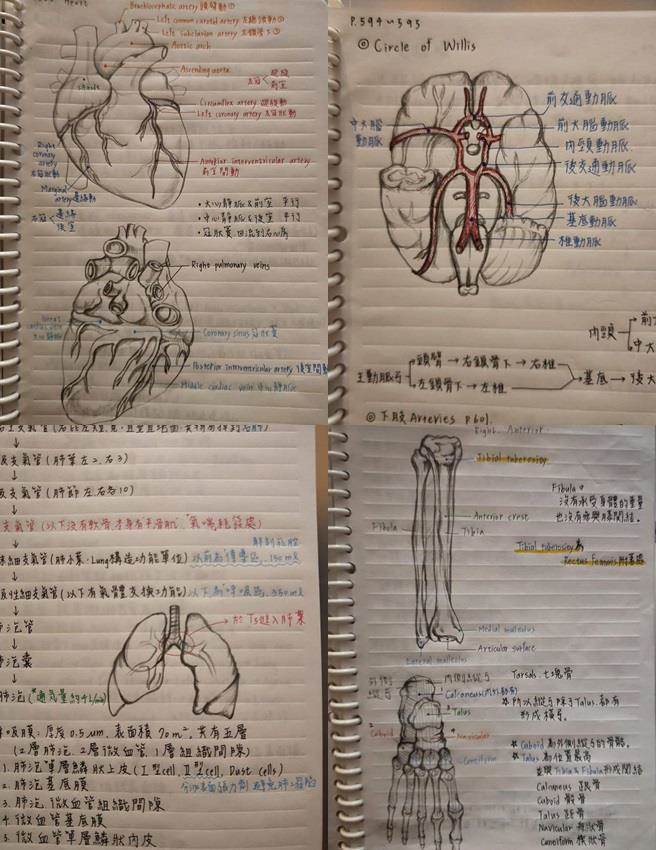 Heart
Brachiocephalic artery 頭臂動①
Left common carotid artery 左總頸動②
Left subclavian artery 左鎖骨下③
Aortic arch
Ascending aorta
左冠
旋繞
前室
Circumflex artery 旋繞動
Left coronary artery 左冠狀動
Right coronary artery 右冠狀動
Anterior interventricular artery
前室間動
Marginal artery 邊緣動
右冠
邊緣
後室
•大心靜脈&前室 平行
•中心靜脈&後室 平行
•冠狀竇 回流到右心房
Right pulmonary veins
Coronary sinus 冠狀竇
Posterior interventricular artery 後室間動
Middle cardiac vein 中心靜脈
P.594~595
◎ Circle of Willis
前交通動脈
中大腦動脈
前大腦動脈
內頸動脈
後交通動脈
後大腦動脈
基底動脈
椎動脈
內頸
前大
中大
主動脈弓
頭臂→右鎖骨下→右椎
左鎖骨下→左椎
→基底→後大
◎下肢Arteries P.601.
級支氣管(肺葉左2.右3)
↓
級支氣管(肺節左右各10)
↓
支氣管(以下沒有軟骨,本身有平滑肌)
"氣喘誘發處"
解剖死腔
末細支氣管(肺小葉.Lung構造功能單位)以前為傳導區,150ml
↓
吸性細支氣管(以下有氣體交換功能)以下為呼吸區,350ml
↓
肺泡管
↓
肺泡囊
↓
肺泡(*通氣量約4L/min)
→於T5進入肺葉
呼吸膜:厚度0.5μm,表面積70m²,共有五層
(2層肺泡.2層微血管.1層組織間隙)
1.肺泡單層鱗狀上皮(I型cell, II型cell, Dust cells)
2.肺泡基底膜
分泌表面張力劑
3.肺泡微血管組織間隙
4.微血管基底膜
5.微血管單層鱗狀內皮
Right. Anterior.
Tibial tuberosity
Fibula。
沒有承受身體的重量
也沒有參與膝關結。
Anterior crest
Fibula
Tibia
Tibial tuberosity為
Rectus femoris附著處
Medial malleolus
Articular surface
Lateral malleolus
內側縱弓
Tarsals. 七塊骨
Calcaneus(內外都有)
*所以縱弓除了Talus.都有
形成橫弓。
Talus
Cuboid
Navicular
Cuneiform
*Cuboid為外側縱弓的骨骼。
*Talus為位置最高
並與Tibia&Fibula形成關結
Calcaneus 跟骨
Cuboid 骰骨
Talus 距骨
Navicular 舟狀骨
Cuneiform 楔狀骨